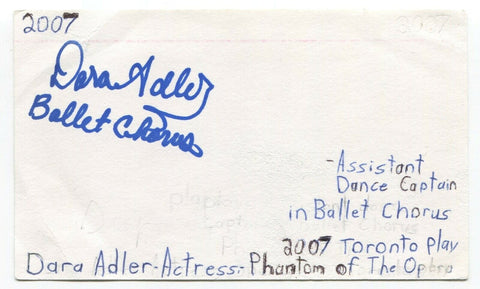 2007
Dara Adler
Ballet Chorus
-Assistant
Dance Captain
in Ballet Chorus
2007 Toronto Play
Dara Adler-Actress-Phantom of The Opera